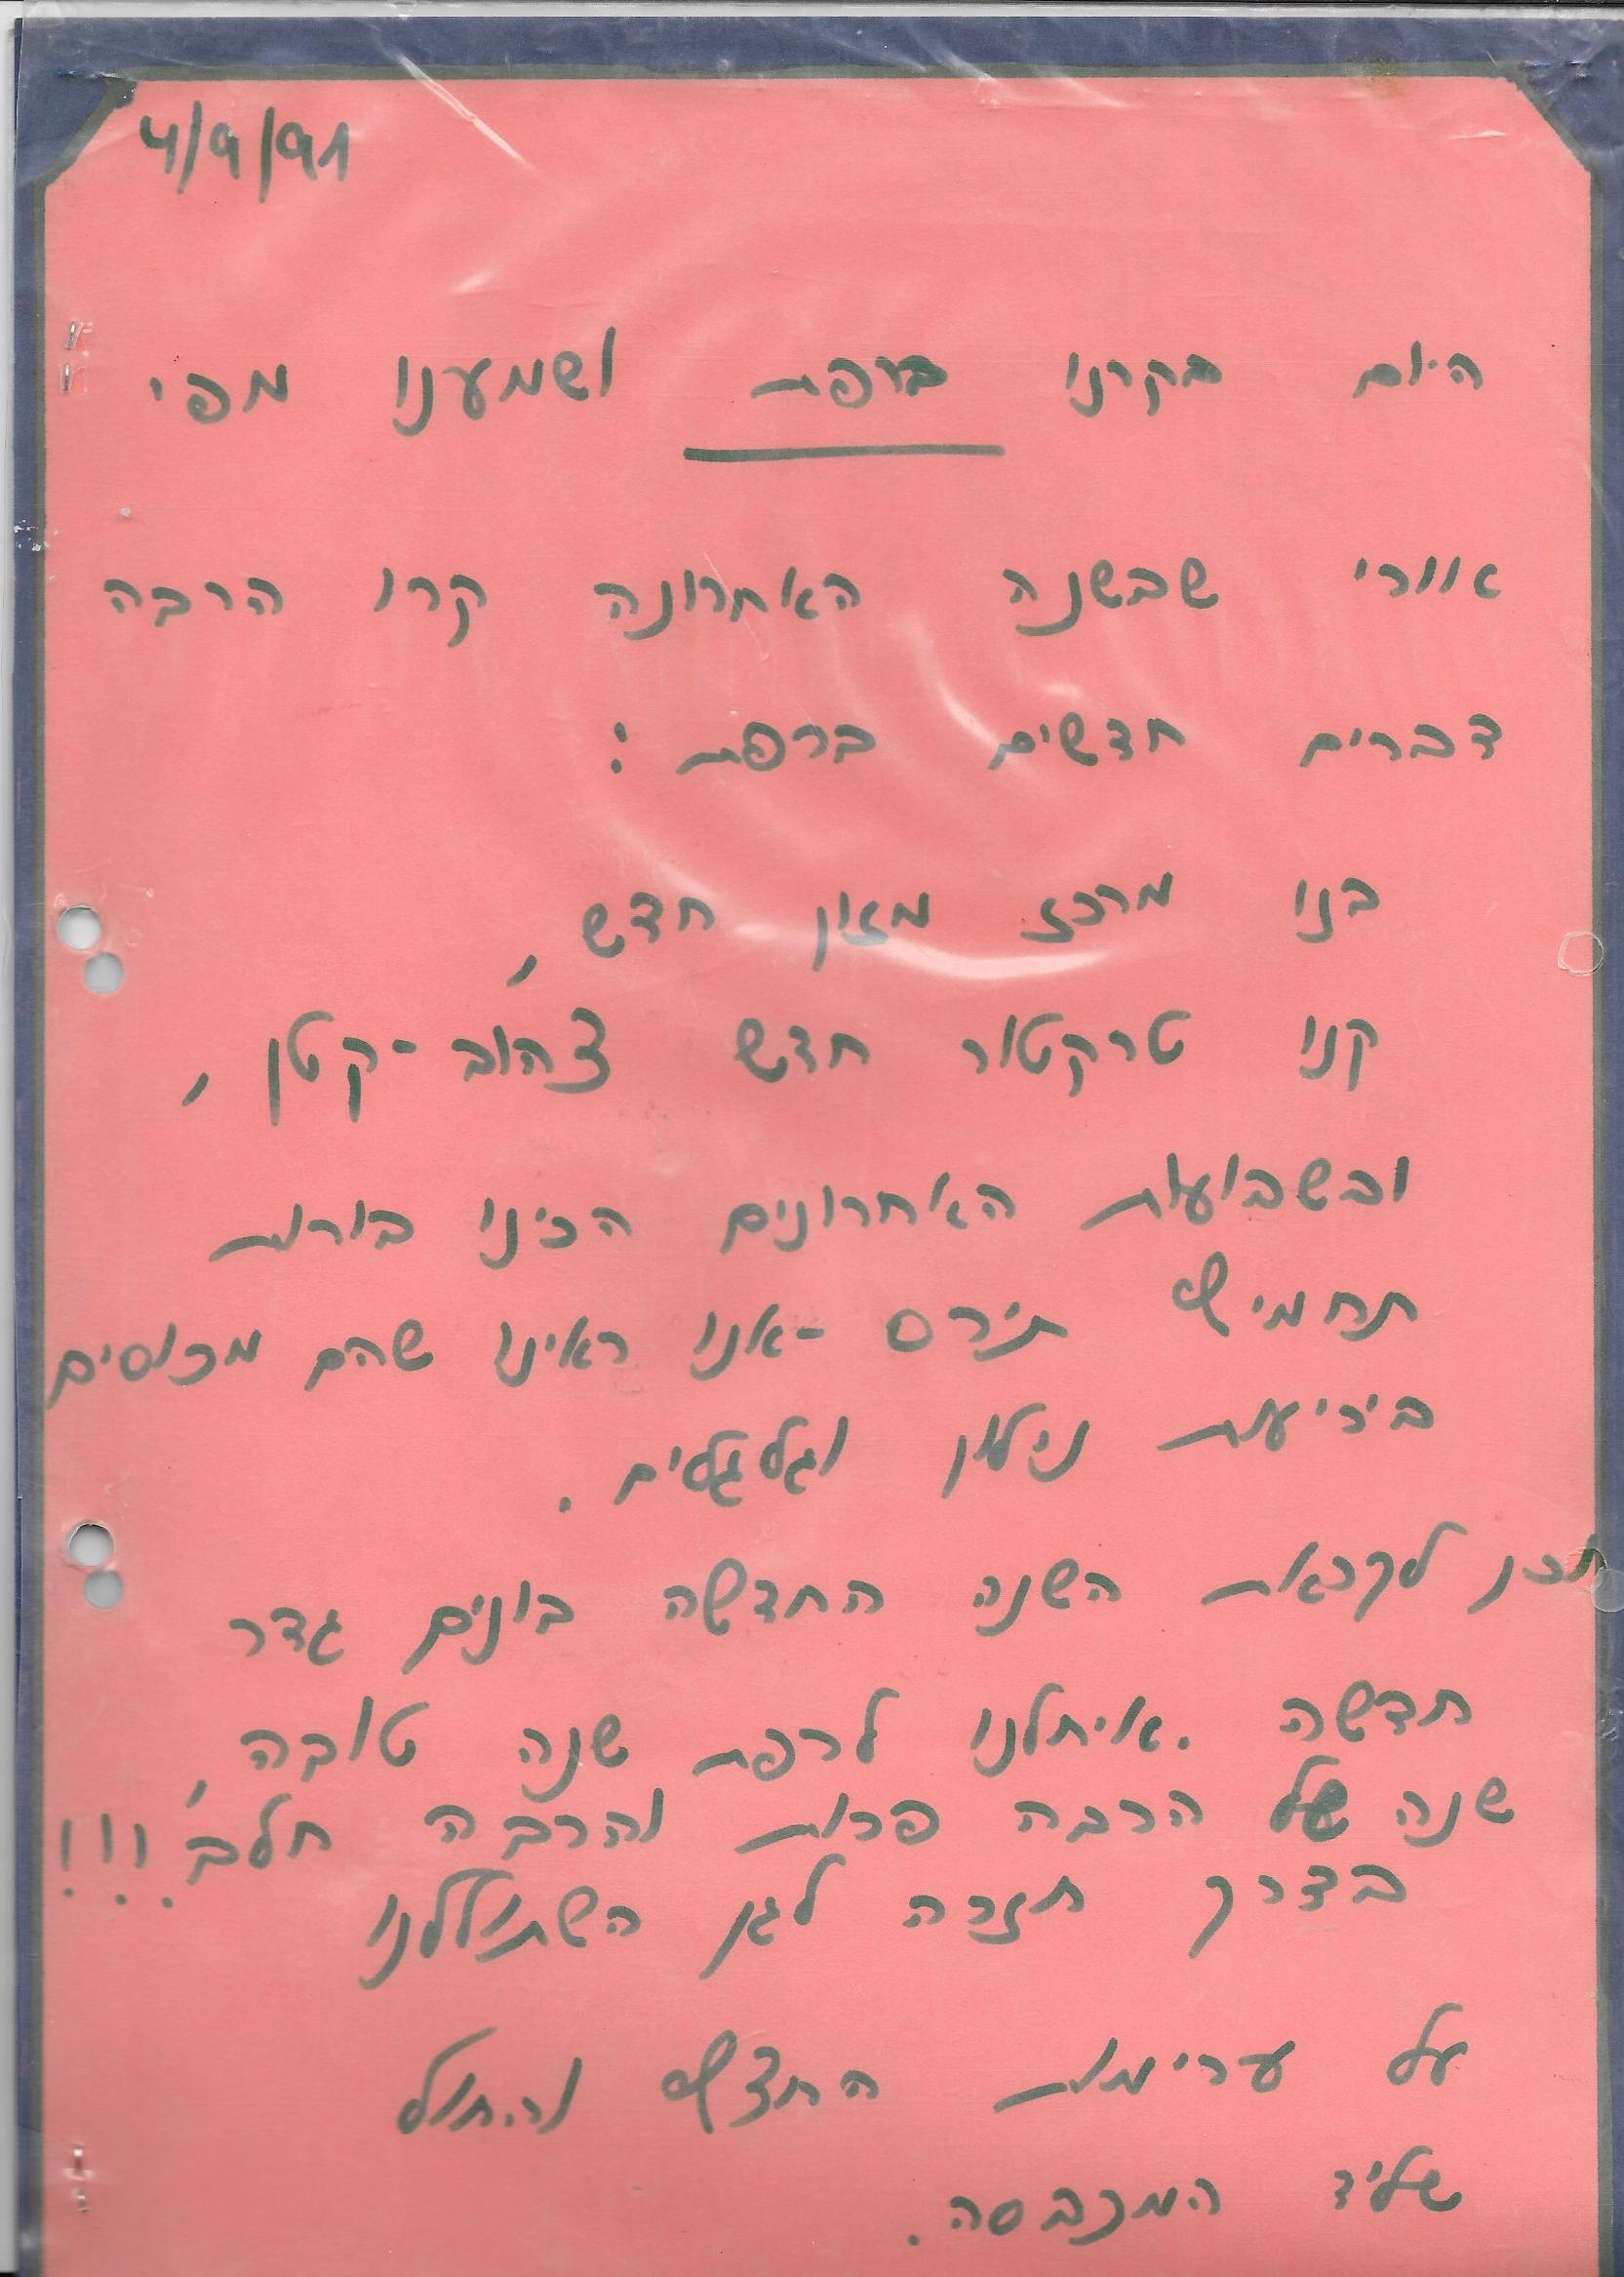 4/9/91
היום בקרנו ברפת ושמענו מפי
אוורי שבשנה האחרונה קרו הרבה
דברים חדשים ברפת :
בנו מרכז מזון חדש ,
קנו טרקטור חדש צהוב -קטן ,
ובשבועות האחרונים הכינו בורות
תחמיץ תירס -אנו ראינו שהם מכוסים
ביריעות נילון וגלגלים .
וכן לקראת השנה החדשה בונים גדר
חדשה . איחלנו לרפת שנה טובה ,
שנה של הרבה פרות והרבה חלב !!!
בדרך חזרה לגן השתוללנו
על ערימות החצץ והחול
שליד המכבסה .